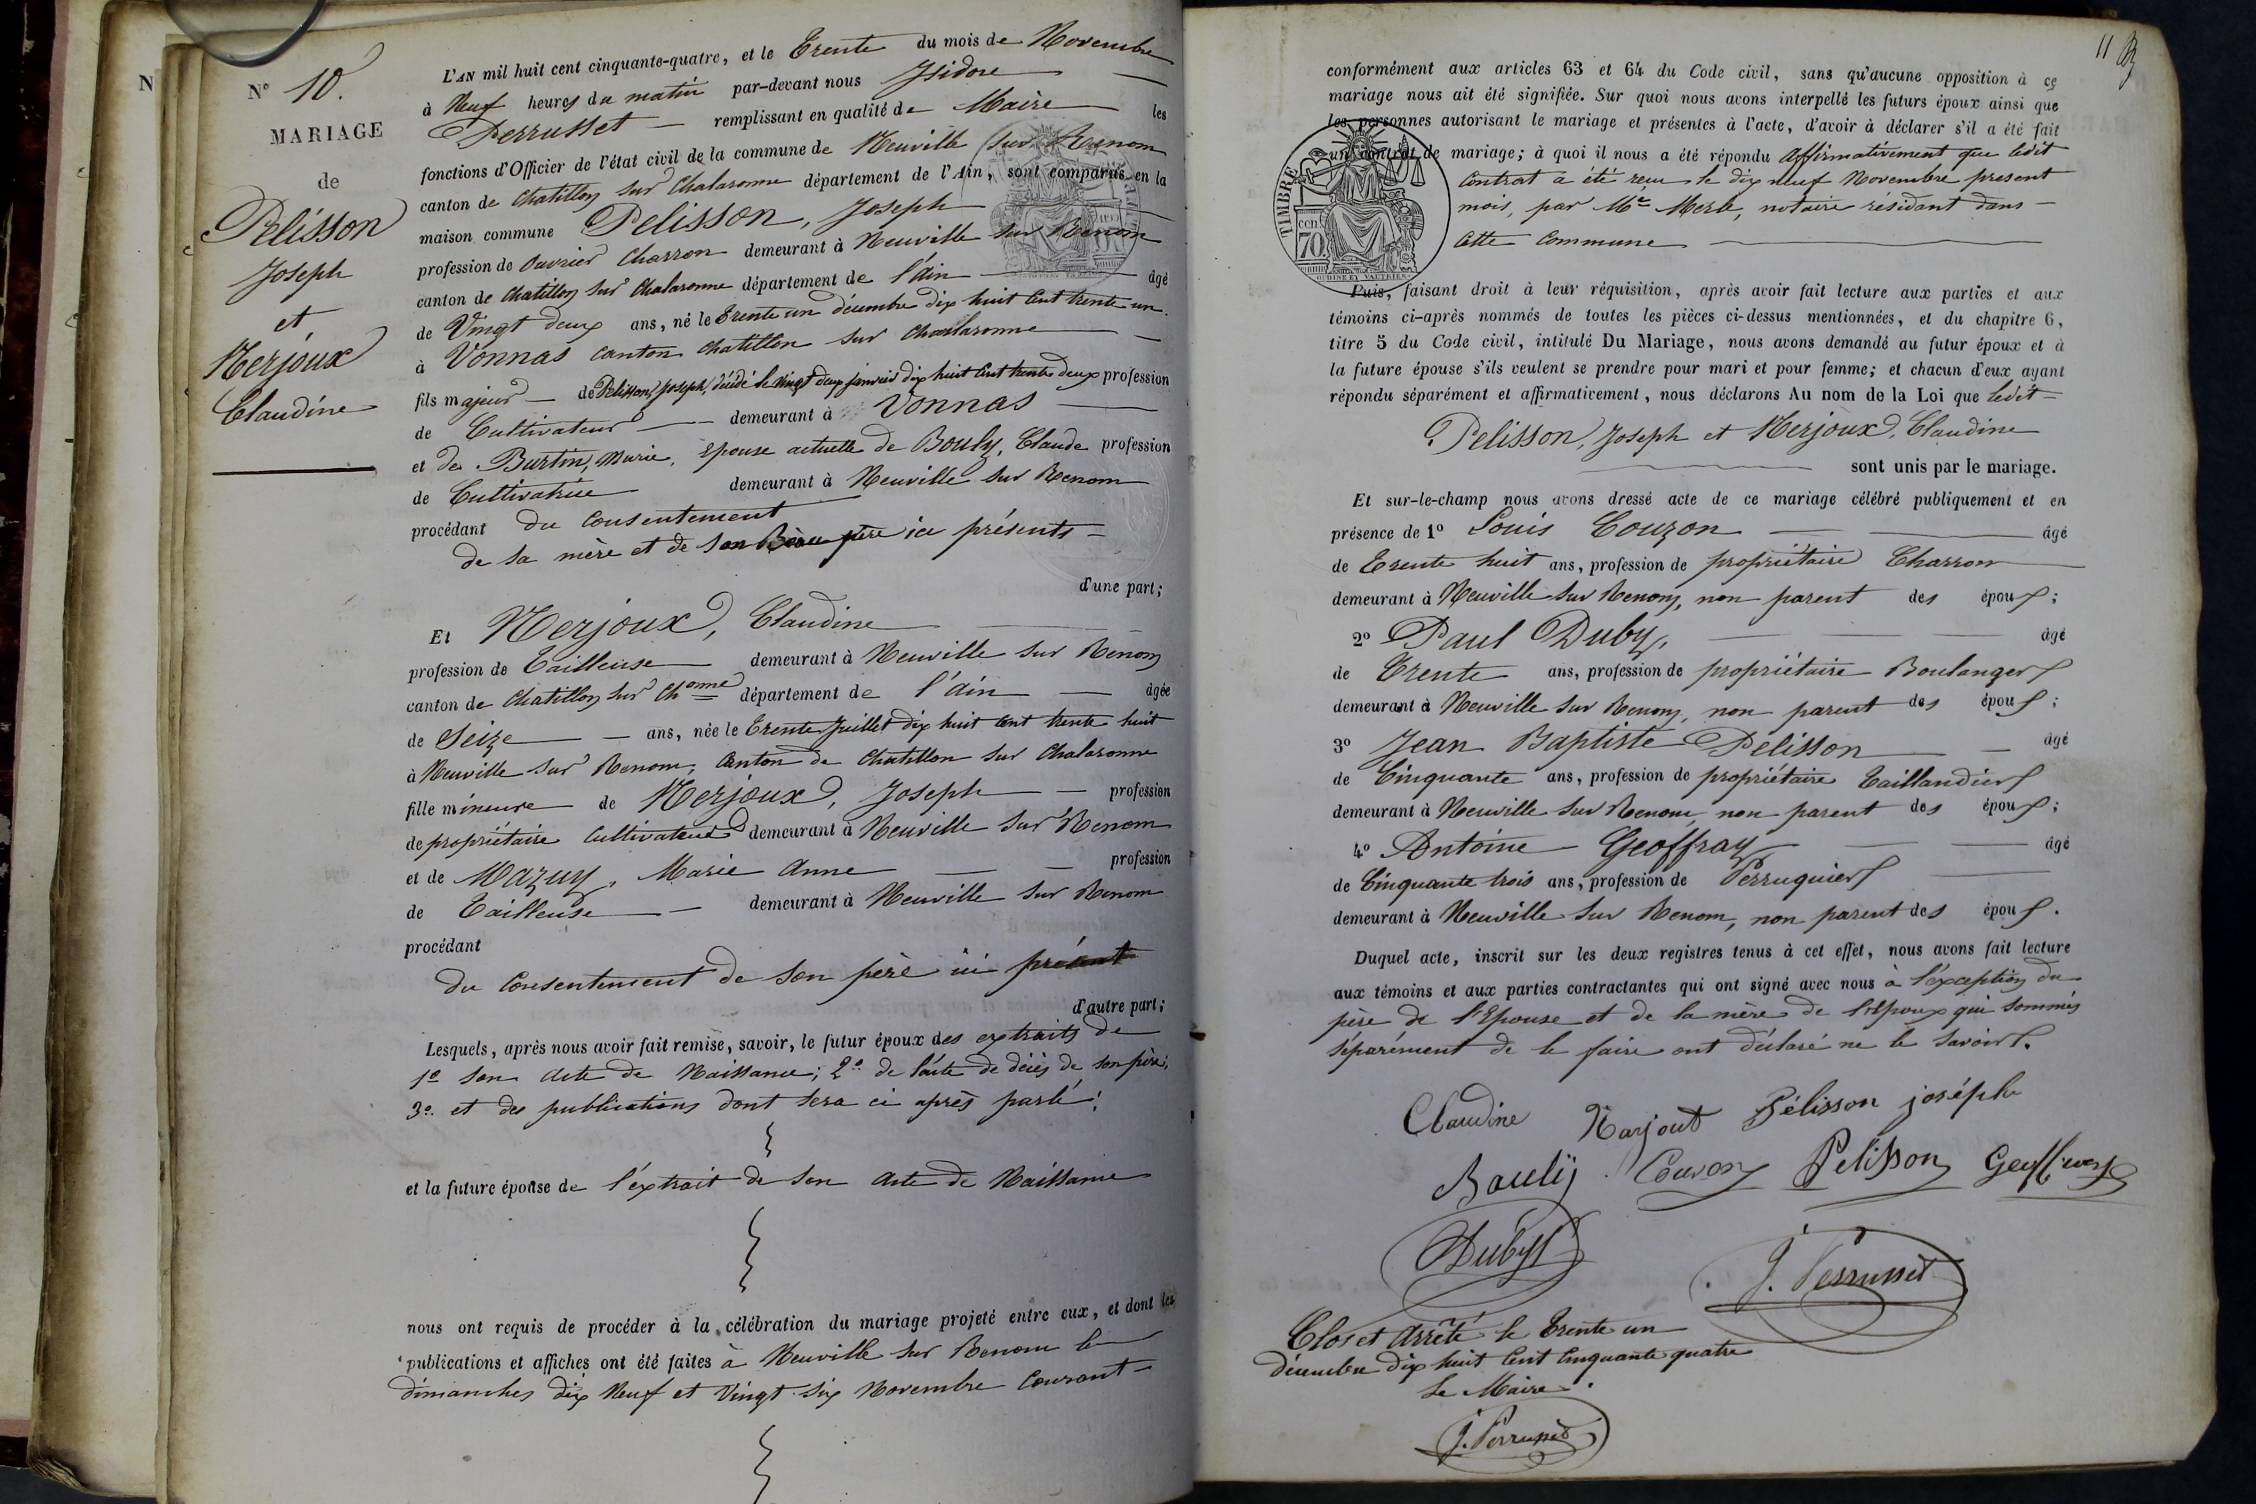 N
N° 10.
MARIAGE
de
Pelisson
Joseph
et
Nerjoux
Claudine
L'AN mil huit cent cinquante-quatre, et le Trente du mois de Novembre
à Neuf heures du matin par-devant nous Isidore
Perrusset remplissant en qualité de Maire les
fonctions d'Officier de l'état civil de la commune de Neuville sur Renom
canton de Chatillon sur Chalaronne département de l'Ain, sont comparus en la
maison commune Pelisson, Joseph
profession de Ouvrier Charron demeurant à Neuville sur Renom
canton de Chatillon sur Chalaronne département de l'ain âgé
de Vingt deux ans, né le Trente un décembre dix huit cent trente un.
à Vonnas canton chatillon sur chalaronne
fils majeur de Pelisson, Joseph, décédé le vingt deux janvier dix huit cent trente deux profession
de Cultivateur demeurant à Vonnas
et de Burtin, Marie, Epouse actuelle de Bouly, Claude profession
de Cultivatrice demeurant à Neuville sur Renom
procédant du consentement
de sa mère et de son Beau père ici présents
d'une part;
Et Nerjoux, Claudine
profession de Tailleuse demeurant à Neuville sur Renom
canton de Chatillon sur Ch onne département de l'ain âgée
de Seize ans, née le Trente Juillet dix huit cent trente huit
à Neuville sur Renom, Canton de chatillon sur Chalaronne
fille mineure de Nerjoux, Joseph profession
de propriétaire Cultivateur demeurant à Neuville sur Renom
et de Mazuy, Marie Anne profession
de Tailleuse demeurant à Neuville sur Renom
procédant
du consentement de son père ici présent
d'autre part;
Lesquels, après nous avoir fait remise, savoir, le futur époux des extraits de
1° son Acte de Naissance; 2° de l'acte de décès de son père;
3° et des publications dont sera ci après parlé;
et la future épouse de l'extrait de son Acte de Naissance
nous ont requis de procéder à la célébration du mariage projeté entre eux, et dont les
publications et affiches ont été faites à Neuville sur Renom le
dimanches dix Neuf et Vingt six Novembre Courant
11
conformément aux articles 63 et 64 du Code civil, sans qu'aucune opposition à ce
mariage nous ait été signifiée. Sur quoi nous avons interpellé les futurs époux ainsi que
les personnes autorisant le mariage et présentes à l'acte, d'avoir à déclarer s'il a été fait
un contrat de mariage; à quoi il nous a été répondu Affirmativement que ledit
Contrat a été reçu le dix neuf Novembre present
mois, par Me Merle, notaire résidant dans
Cette Commune
TIMBRE
cen
70
OUDINE ET VAUTHIER
Puis, faisant droit à leur réquisition, après avoir fait lecture aux parties et aux
témoins ci-après nommés de toutes les pièces ci-dessus mentionnées, et du chapitre 6,
titre 5 du Code civil, intitulé Du Mariage, nous avons demandé au futur époux et à
la future épouse s'ils veulent se prendre pour mari et pour femme; et chacun d'eux ayant
répondu séparément et affirmativement, nous déclarons Au nom de la Loi que ledit
Pelisson, Joseph et Nerjoux, Claudine
sont unis par le mariage.
Et sur-le-champ nous avons dressé acte de ce mariage célébré publiquement et en
présence de 1° Louis Couzon âgé
de Trente huit ans, profession de propriétaire Charron
demeurant à Neuville sur Renom, non parent des époux;
2° Paul Duby, âgé
de Trente ans, profession de propriétaire Boulanger
demeurant à Neuville sur Renom, non parent des époux;
3° Jean Baptiste Pelisson âgé
de Cinquante ans, profession de propriétaire Taillandier
demeurant à Neuville sur Renom, non parent des époux;
4° Antoine Geoffray âgé
de Cinquante trois ans, profession de Perruquier
demeurant à Neuville sur Renom, non parent des époux.
Duquel acte, inscrit sur les deux registres tenus à cet effet, nous avons fait lecture
aux témoins et aux parties contractantes qui ont signé avec nous à l'éxception du
père de l'Epouse et de la mère de l'Epoux qui sommés
séparément de le faire ont déclaré ne le savoir.
Claudine Narjout Pélisson joséph
Bouliÿ Couson Pelisson Geoffray
Duby
J. Perrusset
Clos et Arrêté le Trente un
décembre dix huit Cent Cinquante quatre
Le Maire.
J. Perrusset